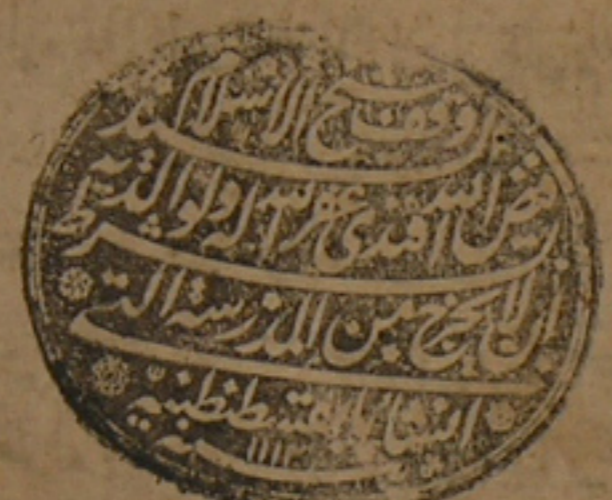 وقف شيخ الاسلام السيد
فيض الله افندى غفر الله له ولوالديه بشرط
ان لا يخرج من المدرسة التى
انشاها بقسطنطنيه
سنة ١١١٣